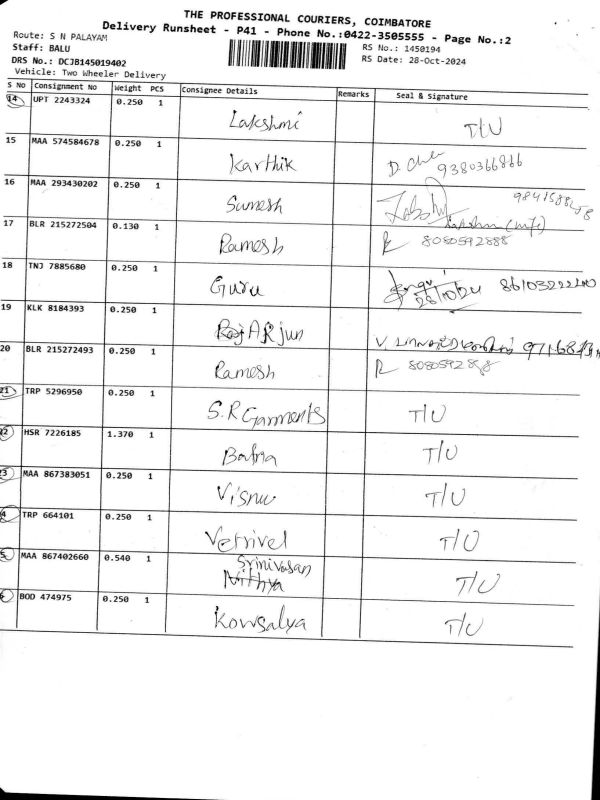 THE PROFESSIONAL COURIERS, COIMBATORE
Delivery Runsheet - P41 - Phone No.:0422-3505555 - Page No.:2
Route: S N PALAYAM
Staff: BALU
RS No.: 1450194
DRS No.: DCJB145019402
RS Date: 28-Oct-2024
Vehicle: Two Wheeler Delivery
S No Consignment No Weight PCS Consignee Details Remarks Seal & Signature
14 UPT 2243324 0.250 1 Lakshmi T/U
15 MAA 574584678 0.250 1 Karthik 9380366866
16 MAA 293430202 0.250 1 Sumesh
17 BLR 215272504 0.130 1 Ramesh 8080592888
18 TNJ 7885680 0.250 1 Guru 28/10/24
19 KLK 8184393 0.250 1 Arjun
20 BLR 215272493 0.250 1 Ramesh 8080592888
21 TRP 5296950 0.250 1 S.R Garments T/U
22 HSR 7226185 1.370 1 T/U
23 MAA 867383051 0.250 1 Visnu T/U
4 TRP 664101 0.250 1 Vetrivel T/U
5 MAA 867402660 0.540 1 Srinivasan Nithya T/U
6 BOD 474975 0.250 1 Kowsalya T/U